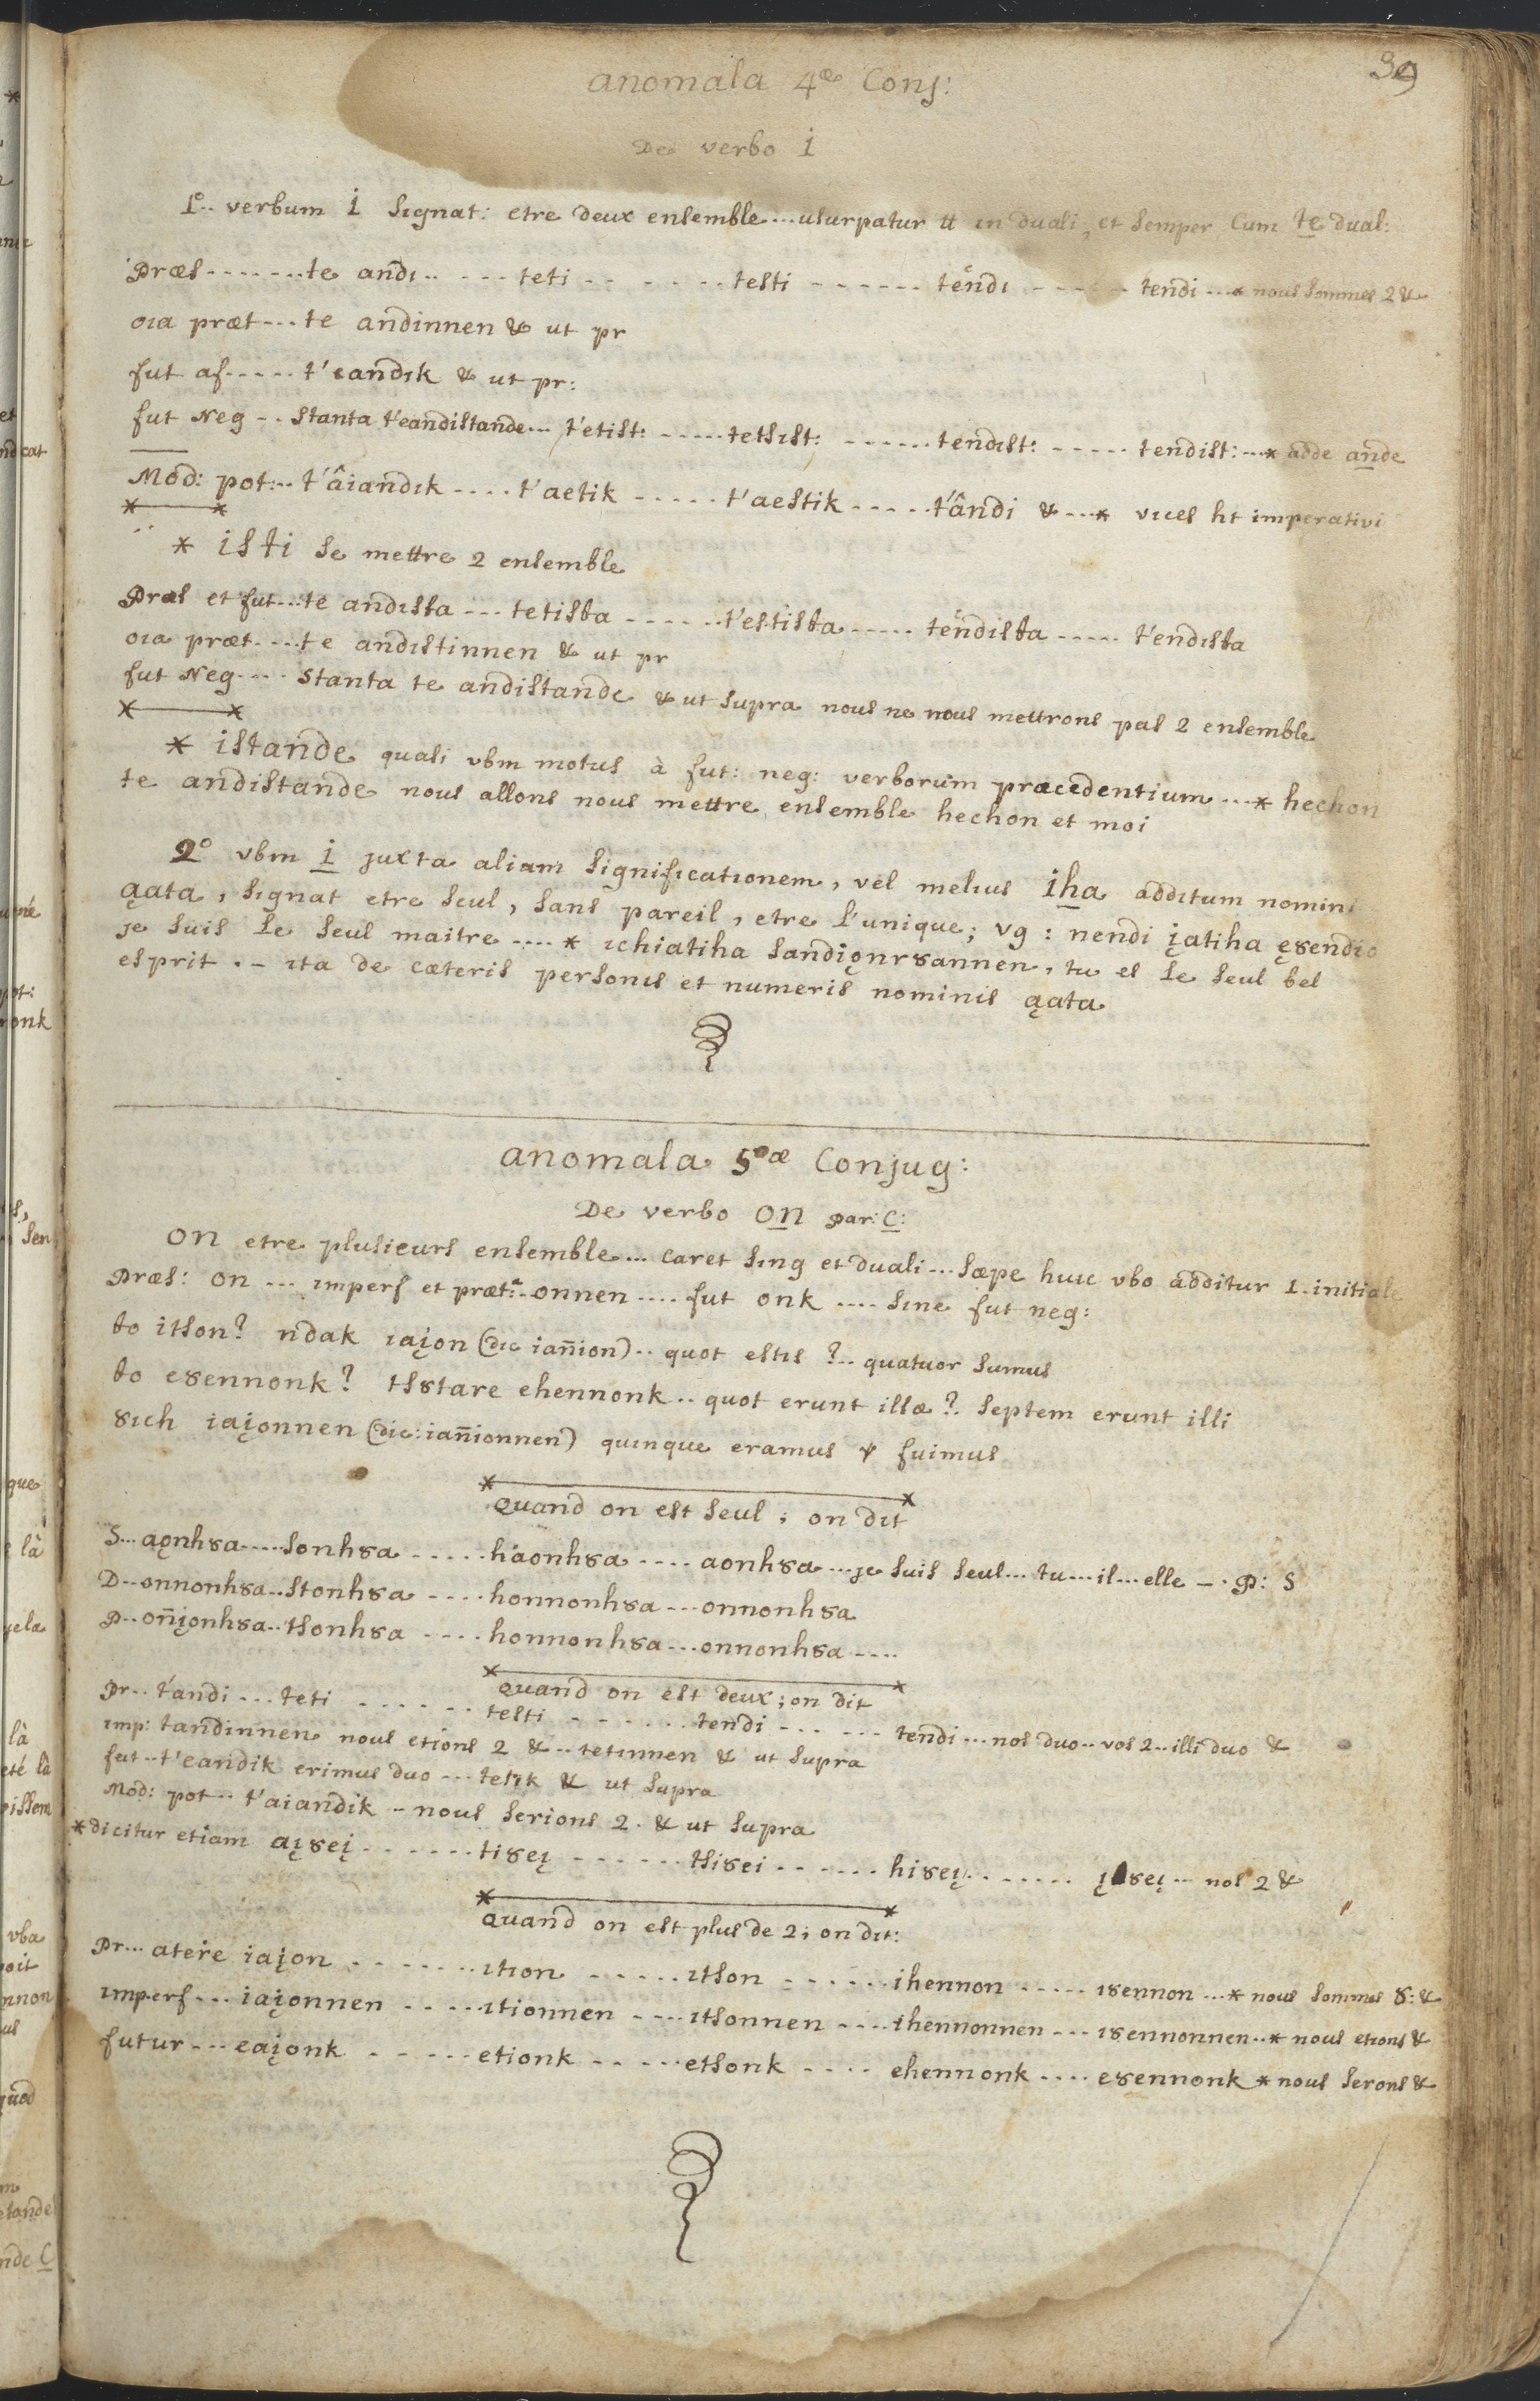 39
anomala 4æ Conj:
De verbo i
1º.. verbum i signat: etre deux ensemble....usurpatur tt in duali, et semper Cum te dual:
Præs.......te andi.. - ...teti.. - ...testi ......tëndi ......tendi...* nous sommes 2 &
oia præt...te andinnen & ut pr
fut af.....t'eandik & ut pr:
fut Neg .. stanta t'eandistande... t'etist: .....tetsist: ......tendist: .....tendist:...* adde ande
Mod: pot:.. t'âiandik ....t'aetik .....t'aestik .....t'ândi & ...* vices ht imperativi
* isti se mettre 2 ensemble
Præs et fut...te andista ...tetista ......t'estista.....tëndista .....t'endista
oia præt....te andistinnen & ut pr
fut Neg....stanta te andistande & ut supra nous ne nous mettrons pas 2 ensemble
* istande quasi vbm motus à fut: neg: verborum præcedentium...* hechon
te andistande nous allons nous mettre ensemble hechon et moi
2º vbm i juxta aliam significationem, vel melius iha additum nomini
ąata, signat etre seul, sans pareil, etre l'unique; vg: nendi įatiha ęȣendio
je suis le seul maitre ....* ichiatiha sandiǫnrȣannen, tu es le seul bel
esprit .- ita de cæteris personis et numeris nominis ąata
anomala 5æ Conjug:
De verbo on par: C:
on etre plusieurs ensemble...caret sing et duali...sæpe huic vbo additur i initiale
Præs: on ...imperf et prætt..onnen ....fut onk ....sine fut neg:
to itson? ndak iaįon (dic iañion)..quot estis?..quatuor sumus
to eȣennonk? tsȣtare ehennonk..quot erunt illæ?. septem erunt illi
ȣich iaįonnen (dic: iañionnen) quinque eramus & fuimus
quand on est seul; on dit
S...aǫnhȣa.....sonhȣa .....háonhȣa ....aonhȣa...je suis seul...tu...il...elle -. P: S
D..onnonhȣa..stonhȣa ....honnonhȣa...onnonhȣa
P..oñįonhȣa..tsonhȣa ....honnonhȣa...onnonhȣa....
quand on est deux; on dit
Pr..t'andi...teti .......testi .......tendi .......tendi...nos duo..vos 2..illi duo &
imp: tandinnen nous etions 2 &..tetinnen & ut supra
fut..t'eandik erimus duo ...tetik & ut supra
Mod: pot..t'aiandik - nous serions 2. & ut supra
*dicitur etiam aįȣeį.......tiȣeį ......tsiȣei ......hiȣeį.......įȣeį...nos 2 &
quand on est plus de 2; on dit:
Pr...atere iaįon .......ition .....itson ......ihennon .....iȣennon...* nous sommes 8: &
imperf...iaįonnen .....itionnen ....itsonnen ....ihennonnen ...iȣennonnen..* nous etions &
futur...eaįonk .....etionk .....etsonk ....ehennonk ....eȣennonk * nous serons &